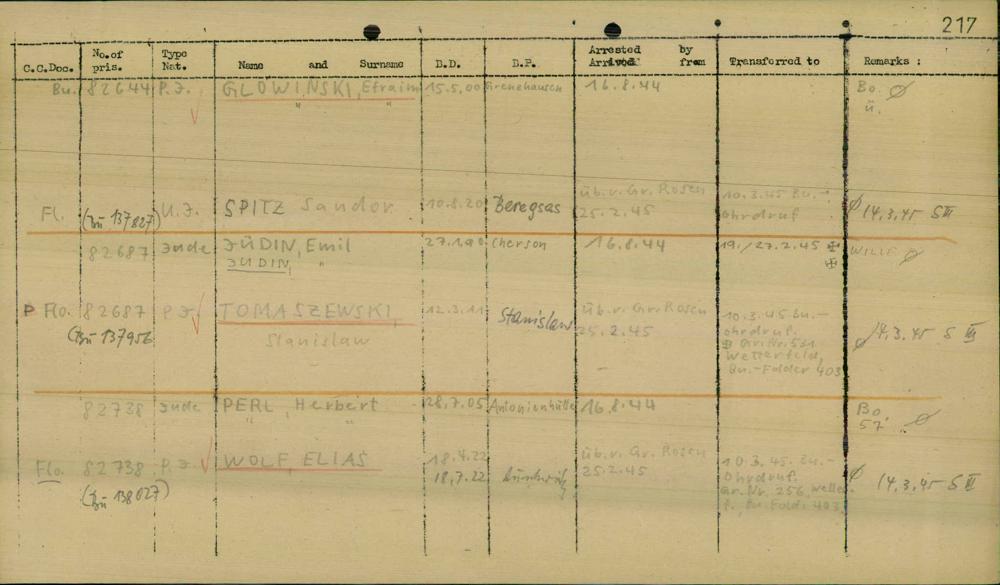 217
C.C.Doc. No.of pris. Type Nat. Name and Surname D.D. D.P. Arrested by Transferred to Remarks :
Arrived from
Bu. 82644 P.J. GLOWINSKI, Efraim 15.5.00 16.8.44 Bo. ∅
" " ü.
Fl. U.J. SPITZ Sandor 10.8.20 Beregsas üb.v. Gr. Rosen 10.3.45 Bu.- ∅ 14.3.45 S III
(Bu 137827) 25.2.45 Ohrdruf
82687 Jude JÜDIN, Emil 27.1.90 Cherson 16.8.44 19./27.2.45 ✠ WILLE ∅
JUDIN, " ✠
P Flo. 82687 P.J. TOMASZEWSKI, 12.3.11 Stanislaw üb.v. Gr. Rosen 10.3.45 Bu.- ∅ 14.3.45 S III
(Bu 137956) Stanislaw 25.2.45 Ohrdruf.
Gr.Nr.531
Wetterfeld,
Bu.-Folder 403
82738 Jude PERL, Herbert 28.7.05 Antonienhütte 16.8.44 Bo. ∅
" " 57.
Flo. 82738 P.J. WOLF, ELIAS 18.4.22 üb.v. Gr. Rosen 10.3.45. Bu.- ∅ 14.3.45 S III
(Bu 138027) 18.7.22 25.2.45 Ohrdruf.
Gr.Nr. 256, Wetter-
f., Bu.Fold. 403